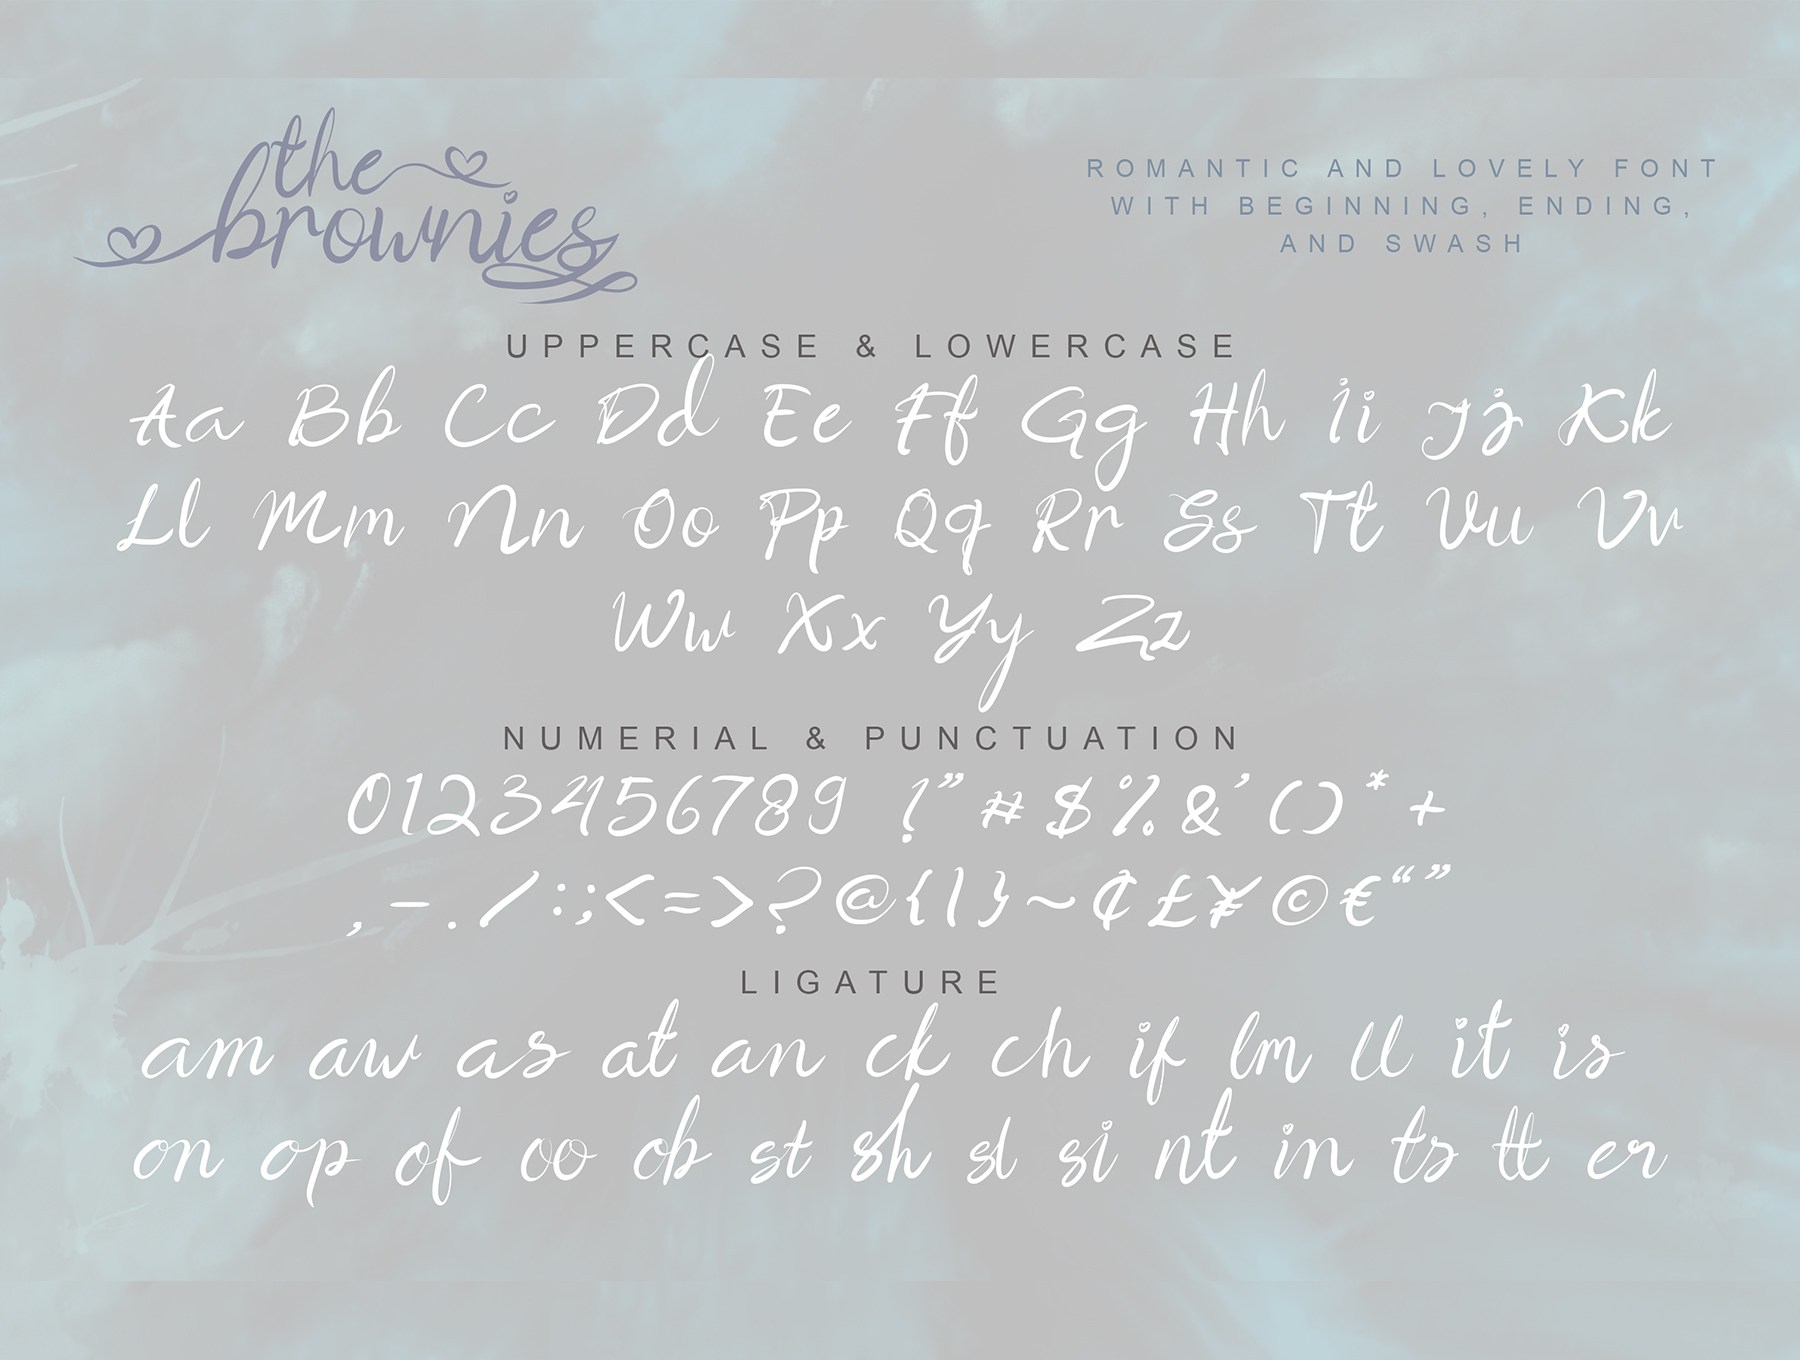 the
brownies
ROMANTIC AND LOVELY FONT
WITH BEGINNING, ENDING,
AND SWASH
UPPERCASE & LOWERCASE
Aa Bb Cc Dd Ee Ff Gg Hh Ii Jj Kk
Ll Mm Nn Oo Pp Qq Rr Ss Tt Uu Vv
Ww Xx Yy Zz
NUMERIAL & PUNCTUATION
0123456789 !”#$%&’()*+
,-./:;<=>?@{|}~¢£¥©€“”
LIGATURE
am aw as at an ck ch if lm ll it is
on op of oo ob st sh sl si nt in ts tt er